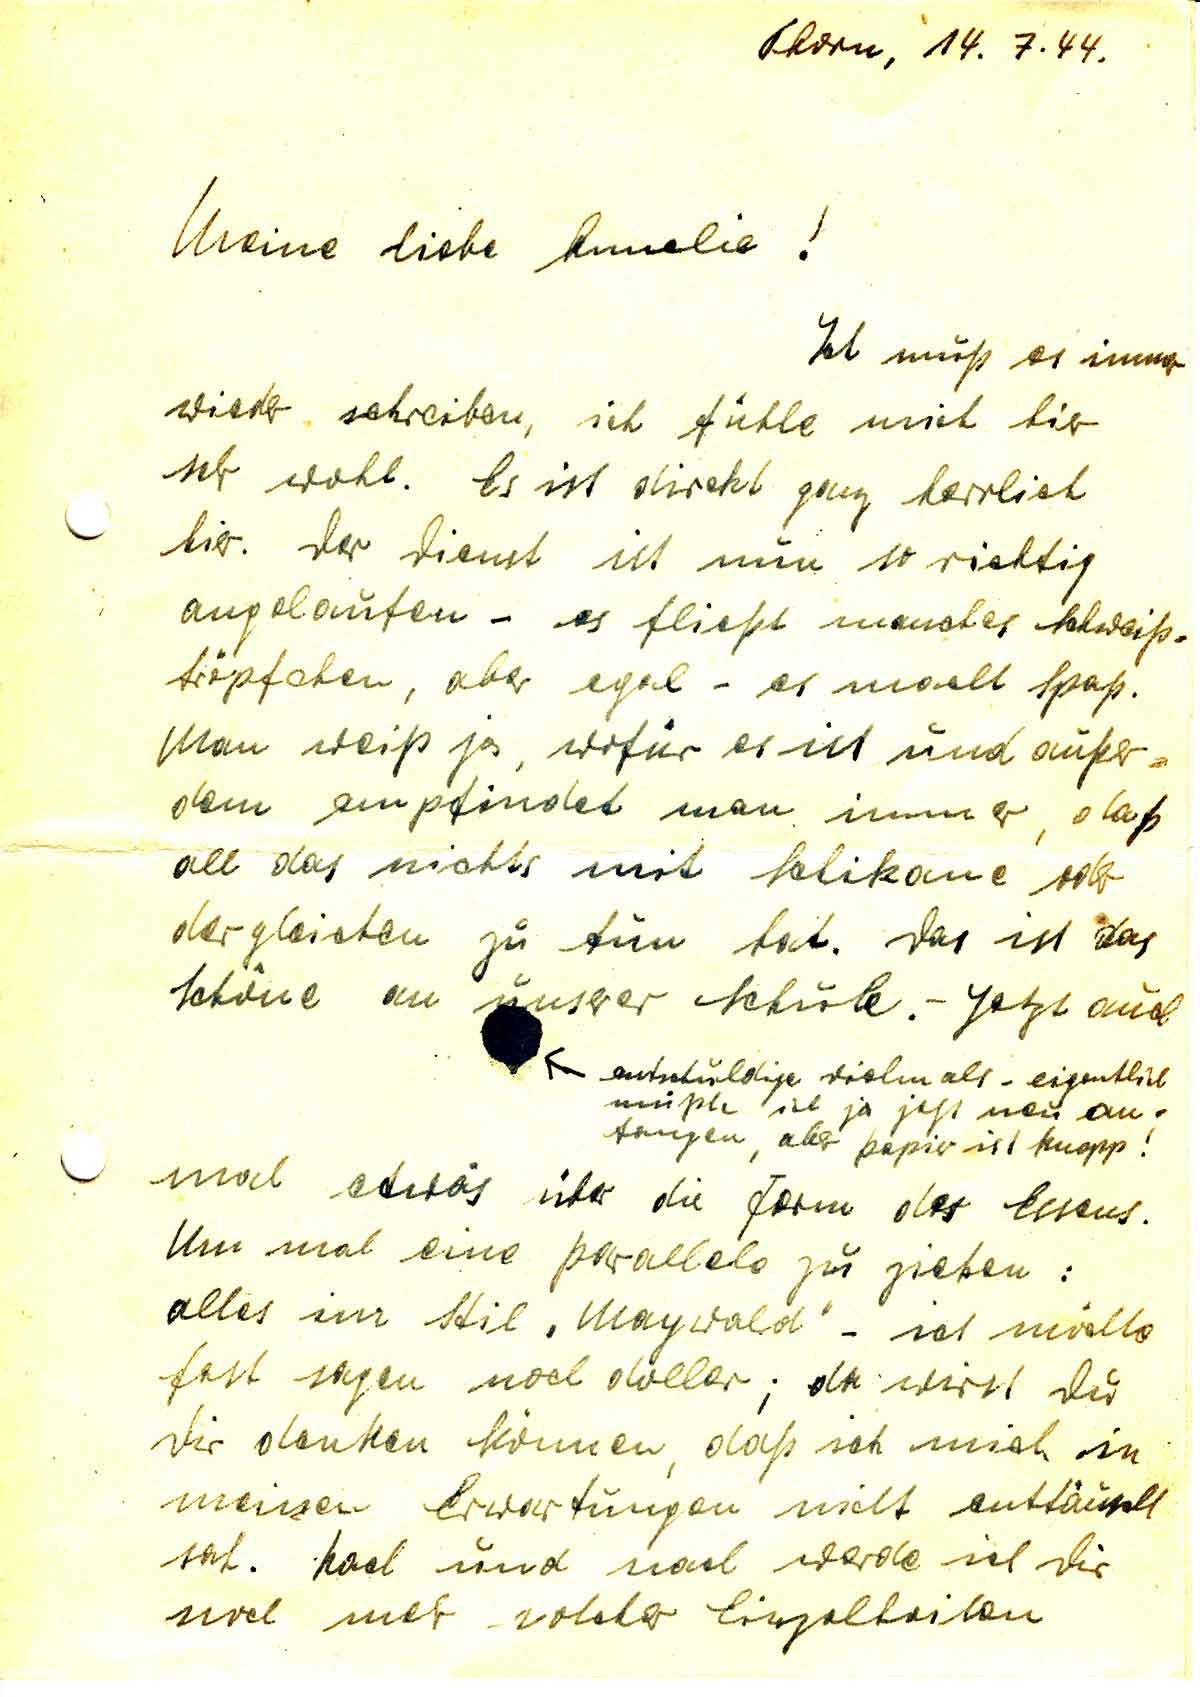 Thorn, 14. 7. 44.
Meine liebe Annelie!
Ich muß es immer
wieder schreiben, ich fühle mich hier
sehr wohl. Es ist direkt ganz herrlich
hier. Der Dienst ist nun so richtig
angelaufen - es fließt manches Schweiß-
tröpfchen, aber egal - es macht Spaß.
Man weiß ja, wofür es ist und außer=
dem empfindet man immer, daß
all das nichts mit Schikane oder
dergleichen zu tun hat. Das ist das
Schöne an unserer Schule. - Jetzt auch
← entschuldige vielmals - eigentlich
müßte ich ja jetzt neu an-
fangen, aber Papier ist knapp!
mal etwas über die Form des Essens.
Um mal eine Parallele zu ziehen:
alles im Stil „Maywald" - ich möchte
fast sagen noch doller; da wirst Du
Dir denken können, daß ich mich in
meinen Erwartungen nicht enttäuscht
sah. Nach und nach werde ich Dir
noch mehr solcher Einzelheiten